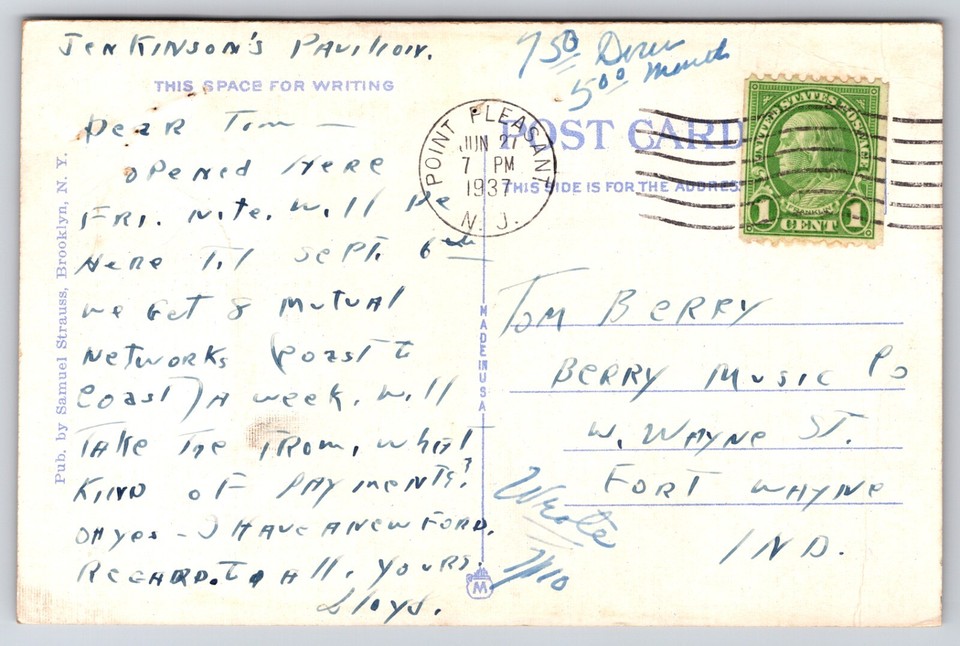 JENKINSON'S PAVILION.
THIS SPACE FOR WRITING
DEAR TOM —
OPENED HERE
FRI. NITE. WILL BE
HERE TIL SEPT. 6th
WE GET 8 MUTUAL
NETWORKS (COAST TO
COAST) A WEEK. WILL
TAKE THE TROM, WHAT
KIND OF PAYMENTS?
OH yes - I HAVE A NEW FORD.
REGARDS. TO All. YOURS.
Lloyd.
Pub. by Samuel Strauss, Brooklyn, N. Y.
7 50 Down
5 00 Month
POST CARD
THIS SIDE IS FOR THE ADDRESS
POINT PLEASANT
JUN 27
7 PM
1937
N. J.
UNITED STATES POSTAGE
FRANKLIN
1 CENT 1
MADE IN USA
TOM BERRY
BERRY MUSIC CO
W. WAYNE ST.
FORT WAYNE
IND.
Wrote
7/10
M